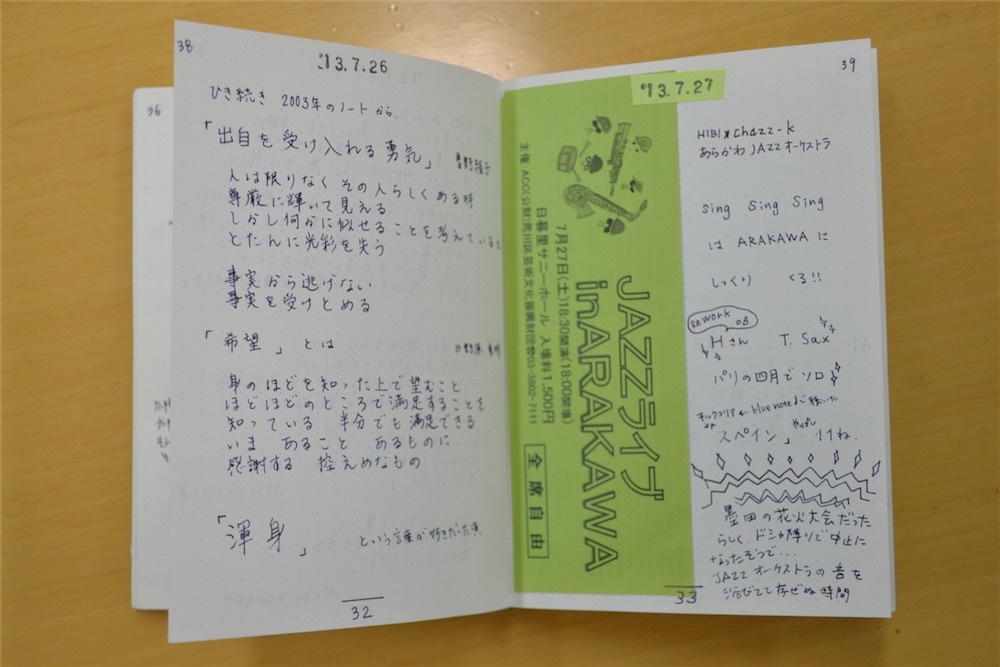 38
'13.7.26
ひき続き 2003年のノートから、
「出自を受け入れる勇気」
人は限りなく その人らしくある時
尊厳に輝いて見える
しかし何かに似せることを考えていると
とたんに光彩を失う
事実から逃げない
事実を受けとめる
「希望」とは
身のほどを知った上で望むこと
ほどほどのところで満足することを
知っている 半分でも満足できる
いま あること あるものに
感謝する 控えめなもの
「渾身」 という言葉が好きだった頃
32
36
39
'13.7.27
JAZZライブ
inARAKAWA
7月27日(土)18:30開演(18:00開場)
日暮里サニーホール 入場料1,500円
主催 ACC(公財)荒川区芸術文化振興財団☎03-3802-7111
全席自由
HIBI★Chazz-K
あらかわ JAZZオーケストラ
Sing Sing Sing
は ARAKAWA に
しっくり くる!!
Rework OB
Hさん T. Sax
パリの四月で ソロ
チックコリア ← blue noteで 聴いた
スペイン」 やっぱ イイね.
墨田の花火大会だった
らしく、ドシャ降りで中止に
なったそうで...
JAZZ オーケストラの音を
浴びてて存ぜぬ時間
33